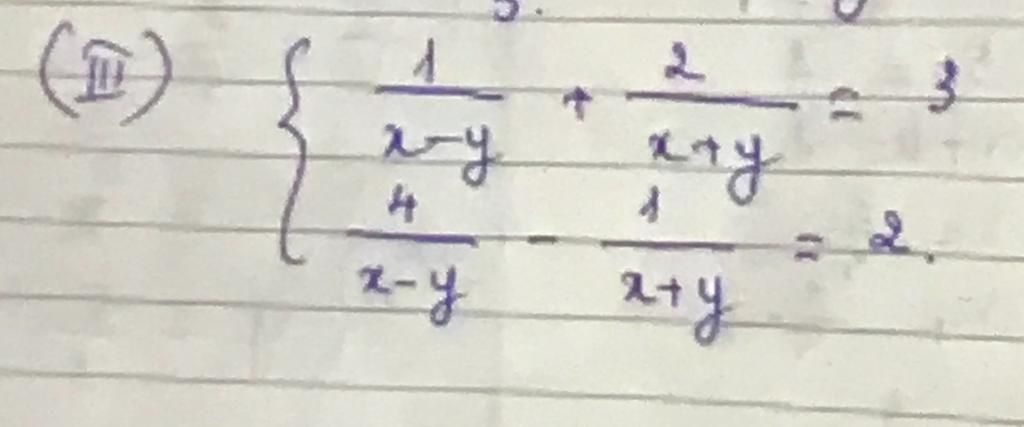 (III) { 1/(x-y) + 2/(x+y) = 3
4/(x-y) - 1/(x+y) = 2.